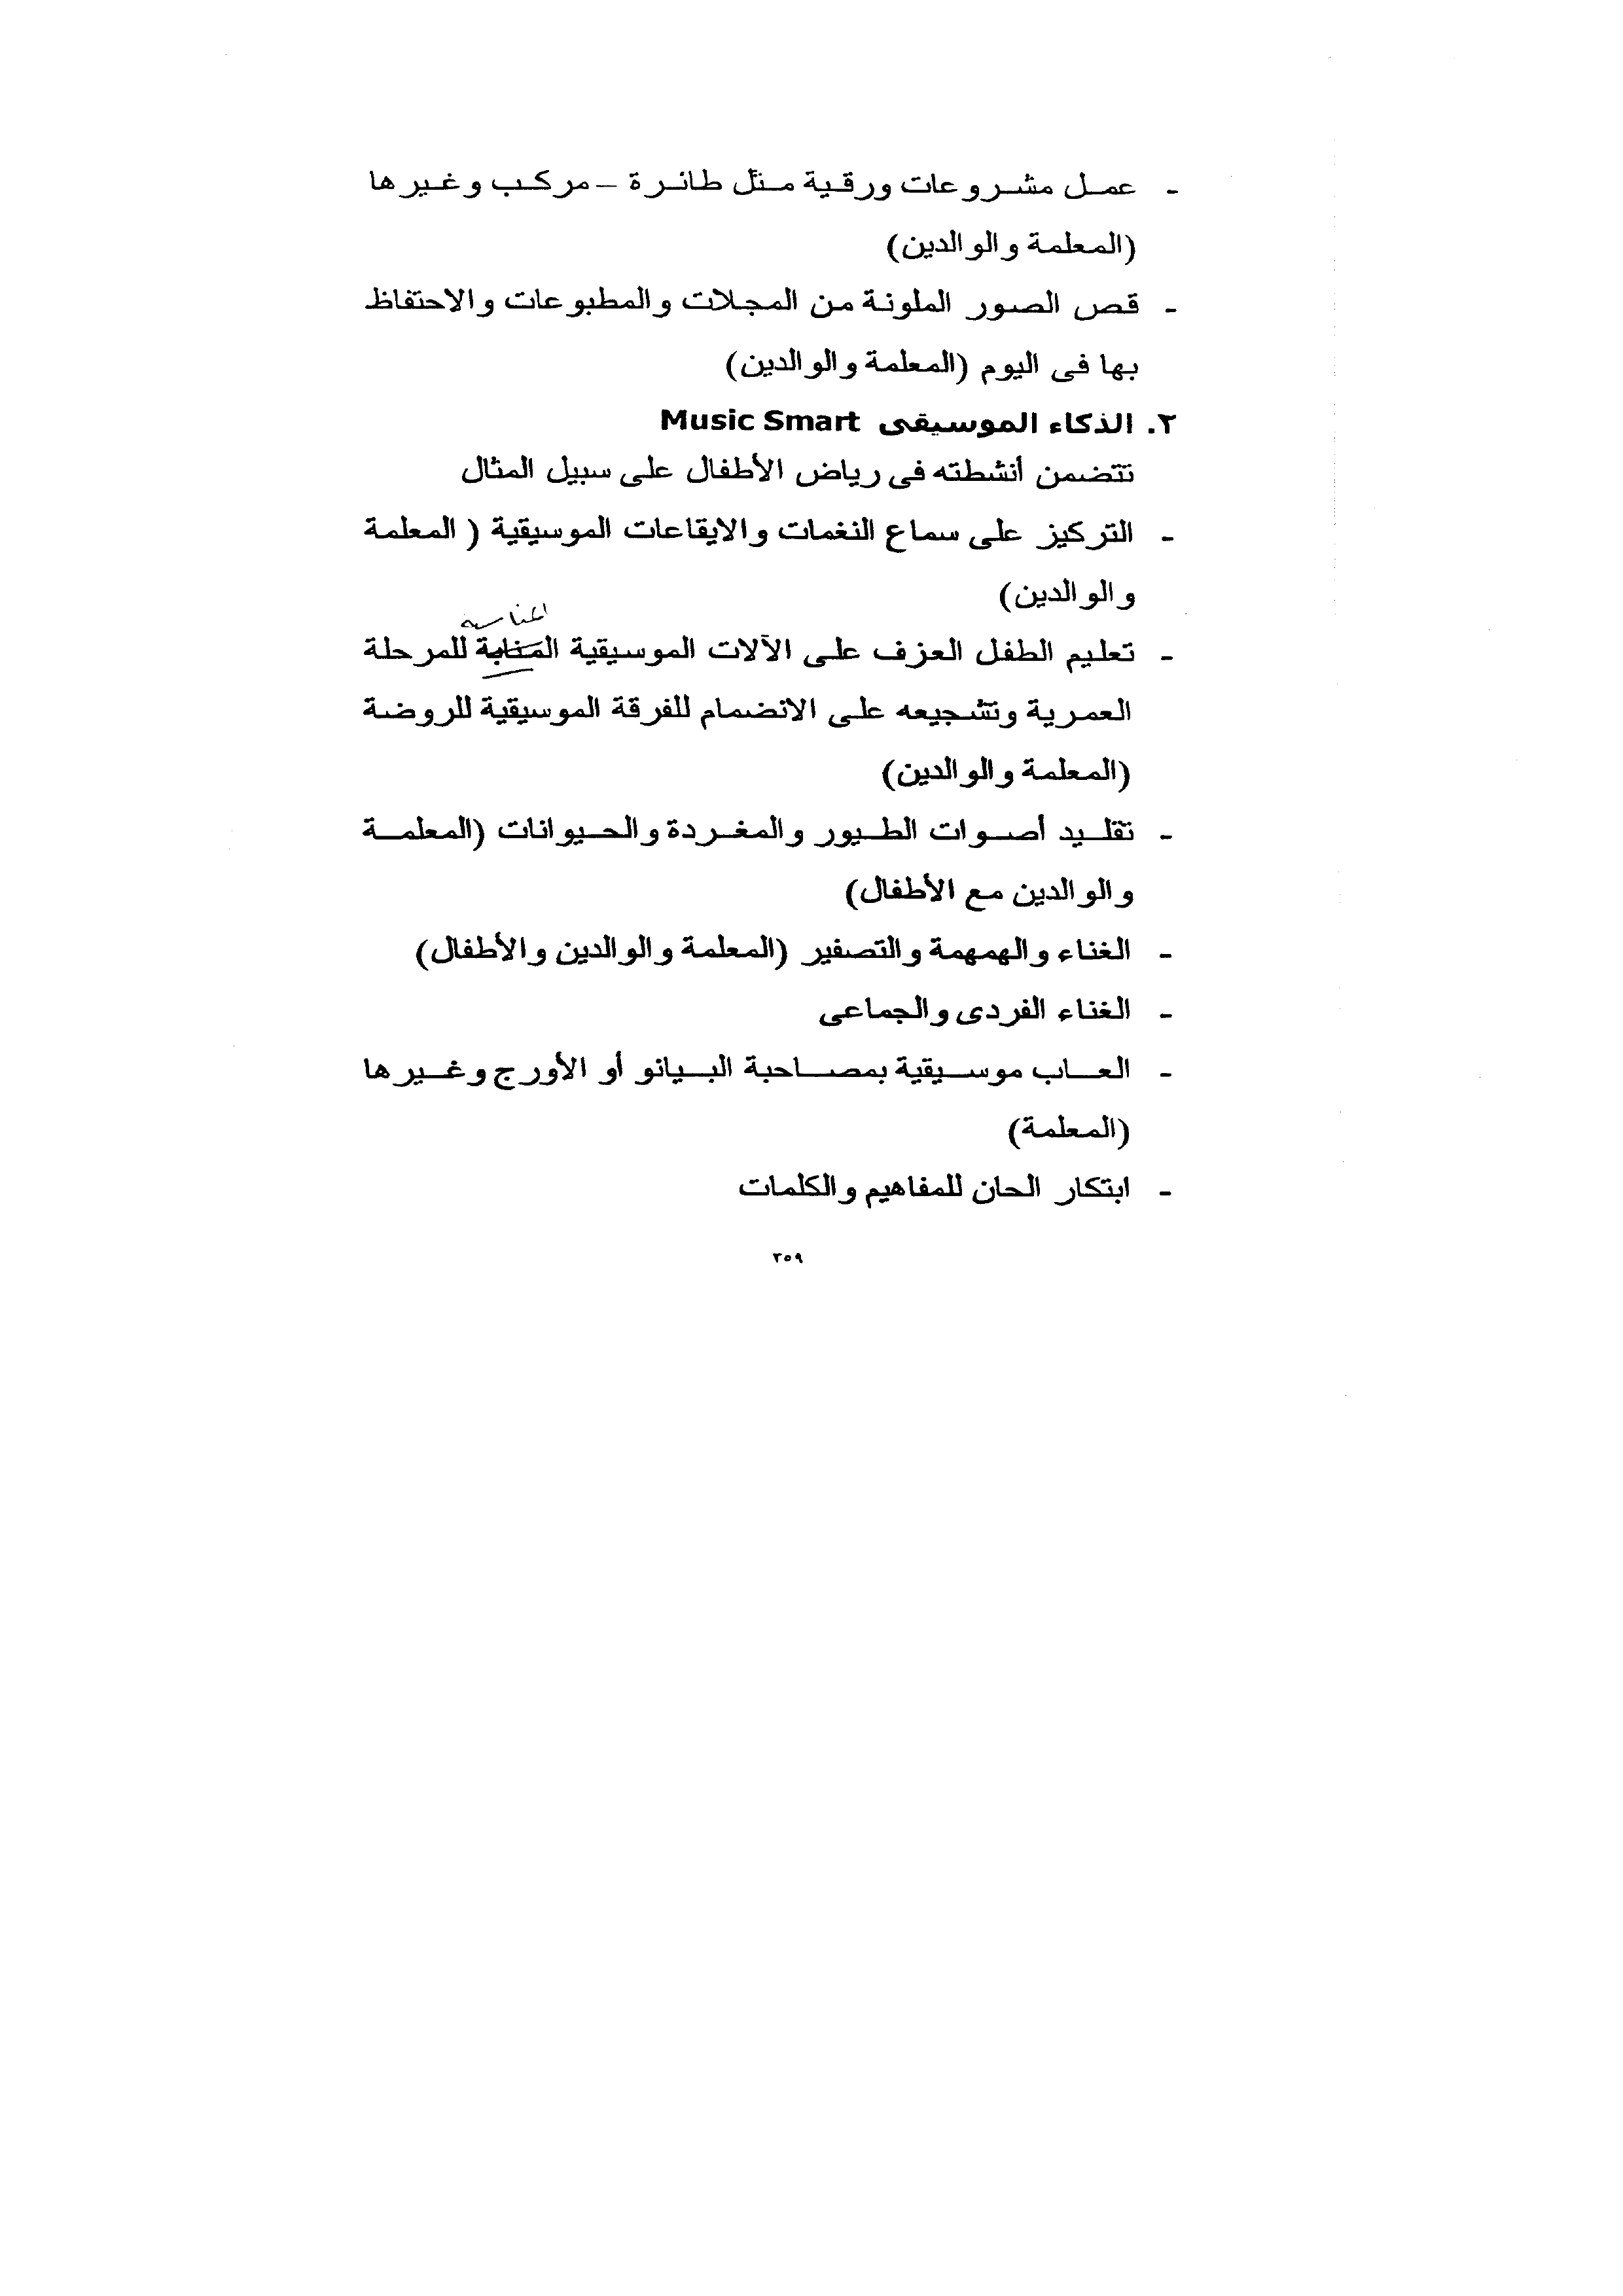 - عمل مشروعات ورقية مثل طائرة – مركب وغيرها
(المعلمة والوالدين)
- قص الصور الملونة من المجلات والمطبوعات والاحتفاظ
بها فى اليوم (المعلمة والوالدين)
٢. الذكاء الموسيقى Music Smart
تتضمن أنشطته فى رياض الأطفال على سبيل المثال
- التركيز على سماع النغمات والايقاعات الموسيقية ( المعلمة
والوالدين)
المناسبه
- تعليم الطفل العزف على الآلات الموسيقية للمرحلة
العمرية وتشجيعه على الانضمام للفرقة الموسيقية للروضة
(المعلمة والوالدين)
- تقليد أصوات الطيور والمغردة والحيوانات (المعلمة
والوالدين مع الأطفال)
- الغناء والهمهمة والتصفير (المعلمة والوالدين والأطفال)
- الغناء الفردى والجماعى
- العاب موسيقية بمصاحبة البيانو أو الأورج وغيرها
(المعلمة)
- ابتكار الحان للمفاهيم والكلمات
٢٥٩